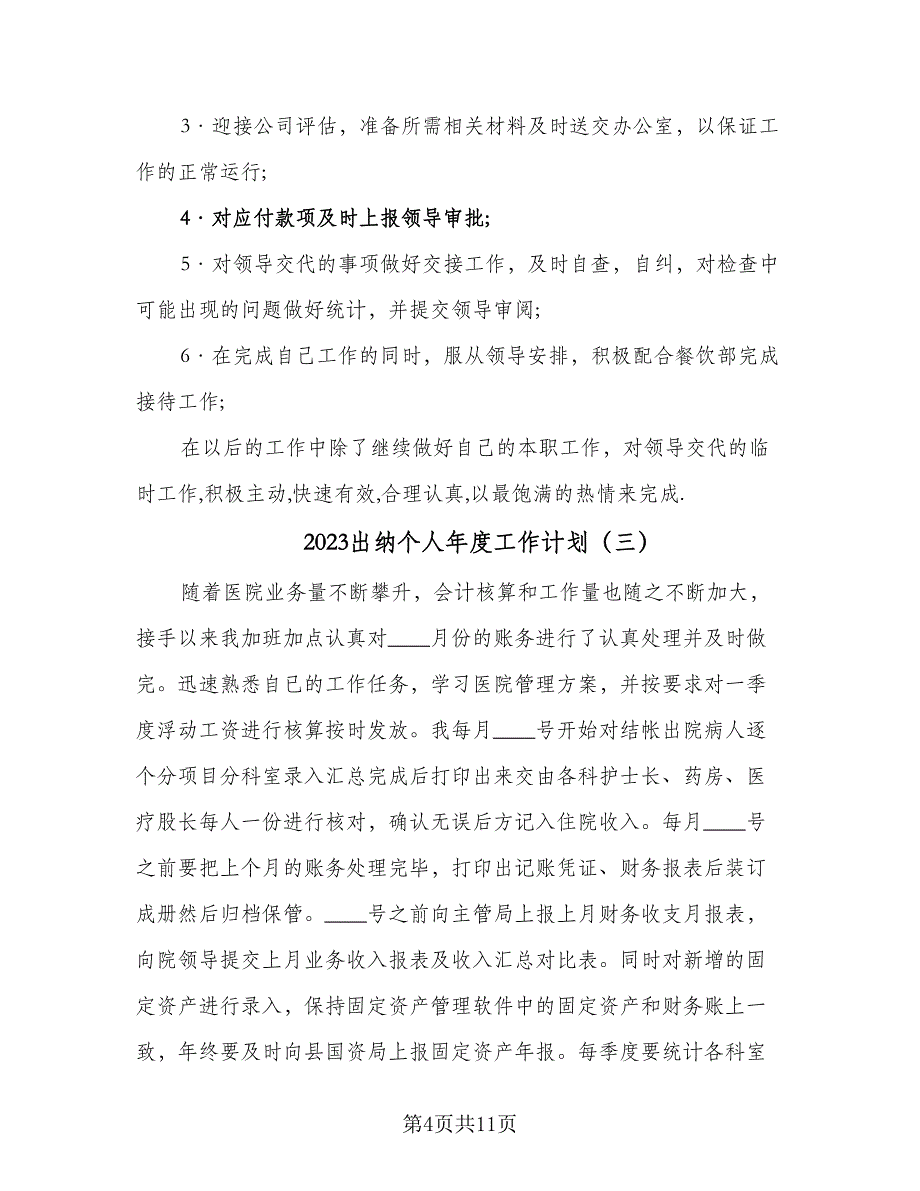 3．迎接公司评估，准备所需相关材料及时送交办公室，以保证工
作的正常运行;
4．对应付款项及时上报领导审批;
5．对领导交代的事项做好交接工作，及时自查，自纠，对检查中
可能出现的问题做好统计，并提交领导审阅;
6．在完成自己工作的同时，服从领导安排，积极配合餐饮部完成
接待工作;
在以后的工作中除了继续做好自己的本职工作，对领导交代的临
时工作,积极主动,快速有效,合理认真,以最饱满的热情来完成.
2023出纳个人年度工作计划（三）
随着医院业务量不断攀升，会计核算和工作量也随之不断加大，
接手以来我加班加点认真对____月份的账务进行了认真处理并及时做
完。迅速熟悉自己的工作任务，学习医院管理方案，并按要求对一季
度浮动工资进行核算按时发放。我每月____号开始对结帐出院病人逐
个分项目分科室录入汇总完成后打印出来交由各科护士长、药房、医
疗股长每人一份进行核对，确认无误后方记入住院收入。每月____号
之前要把上个月的账务处理完毕，打印出记账凭证、财务报表后装订
成册然后归档保管。____号之前向主管局上报上月财务收支月报表，
向院领导提交上月业务收入报表及收入汇总对比表。同时对新增的固
定资产进行录入，保持固定资产管理软件中的固定资产和财务账上一
致，年终要及时向县国资局上报固定资产年报。每季度要统计各科室
第4页共11页